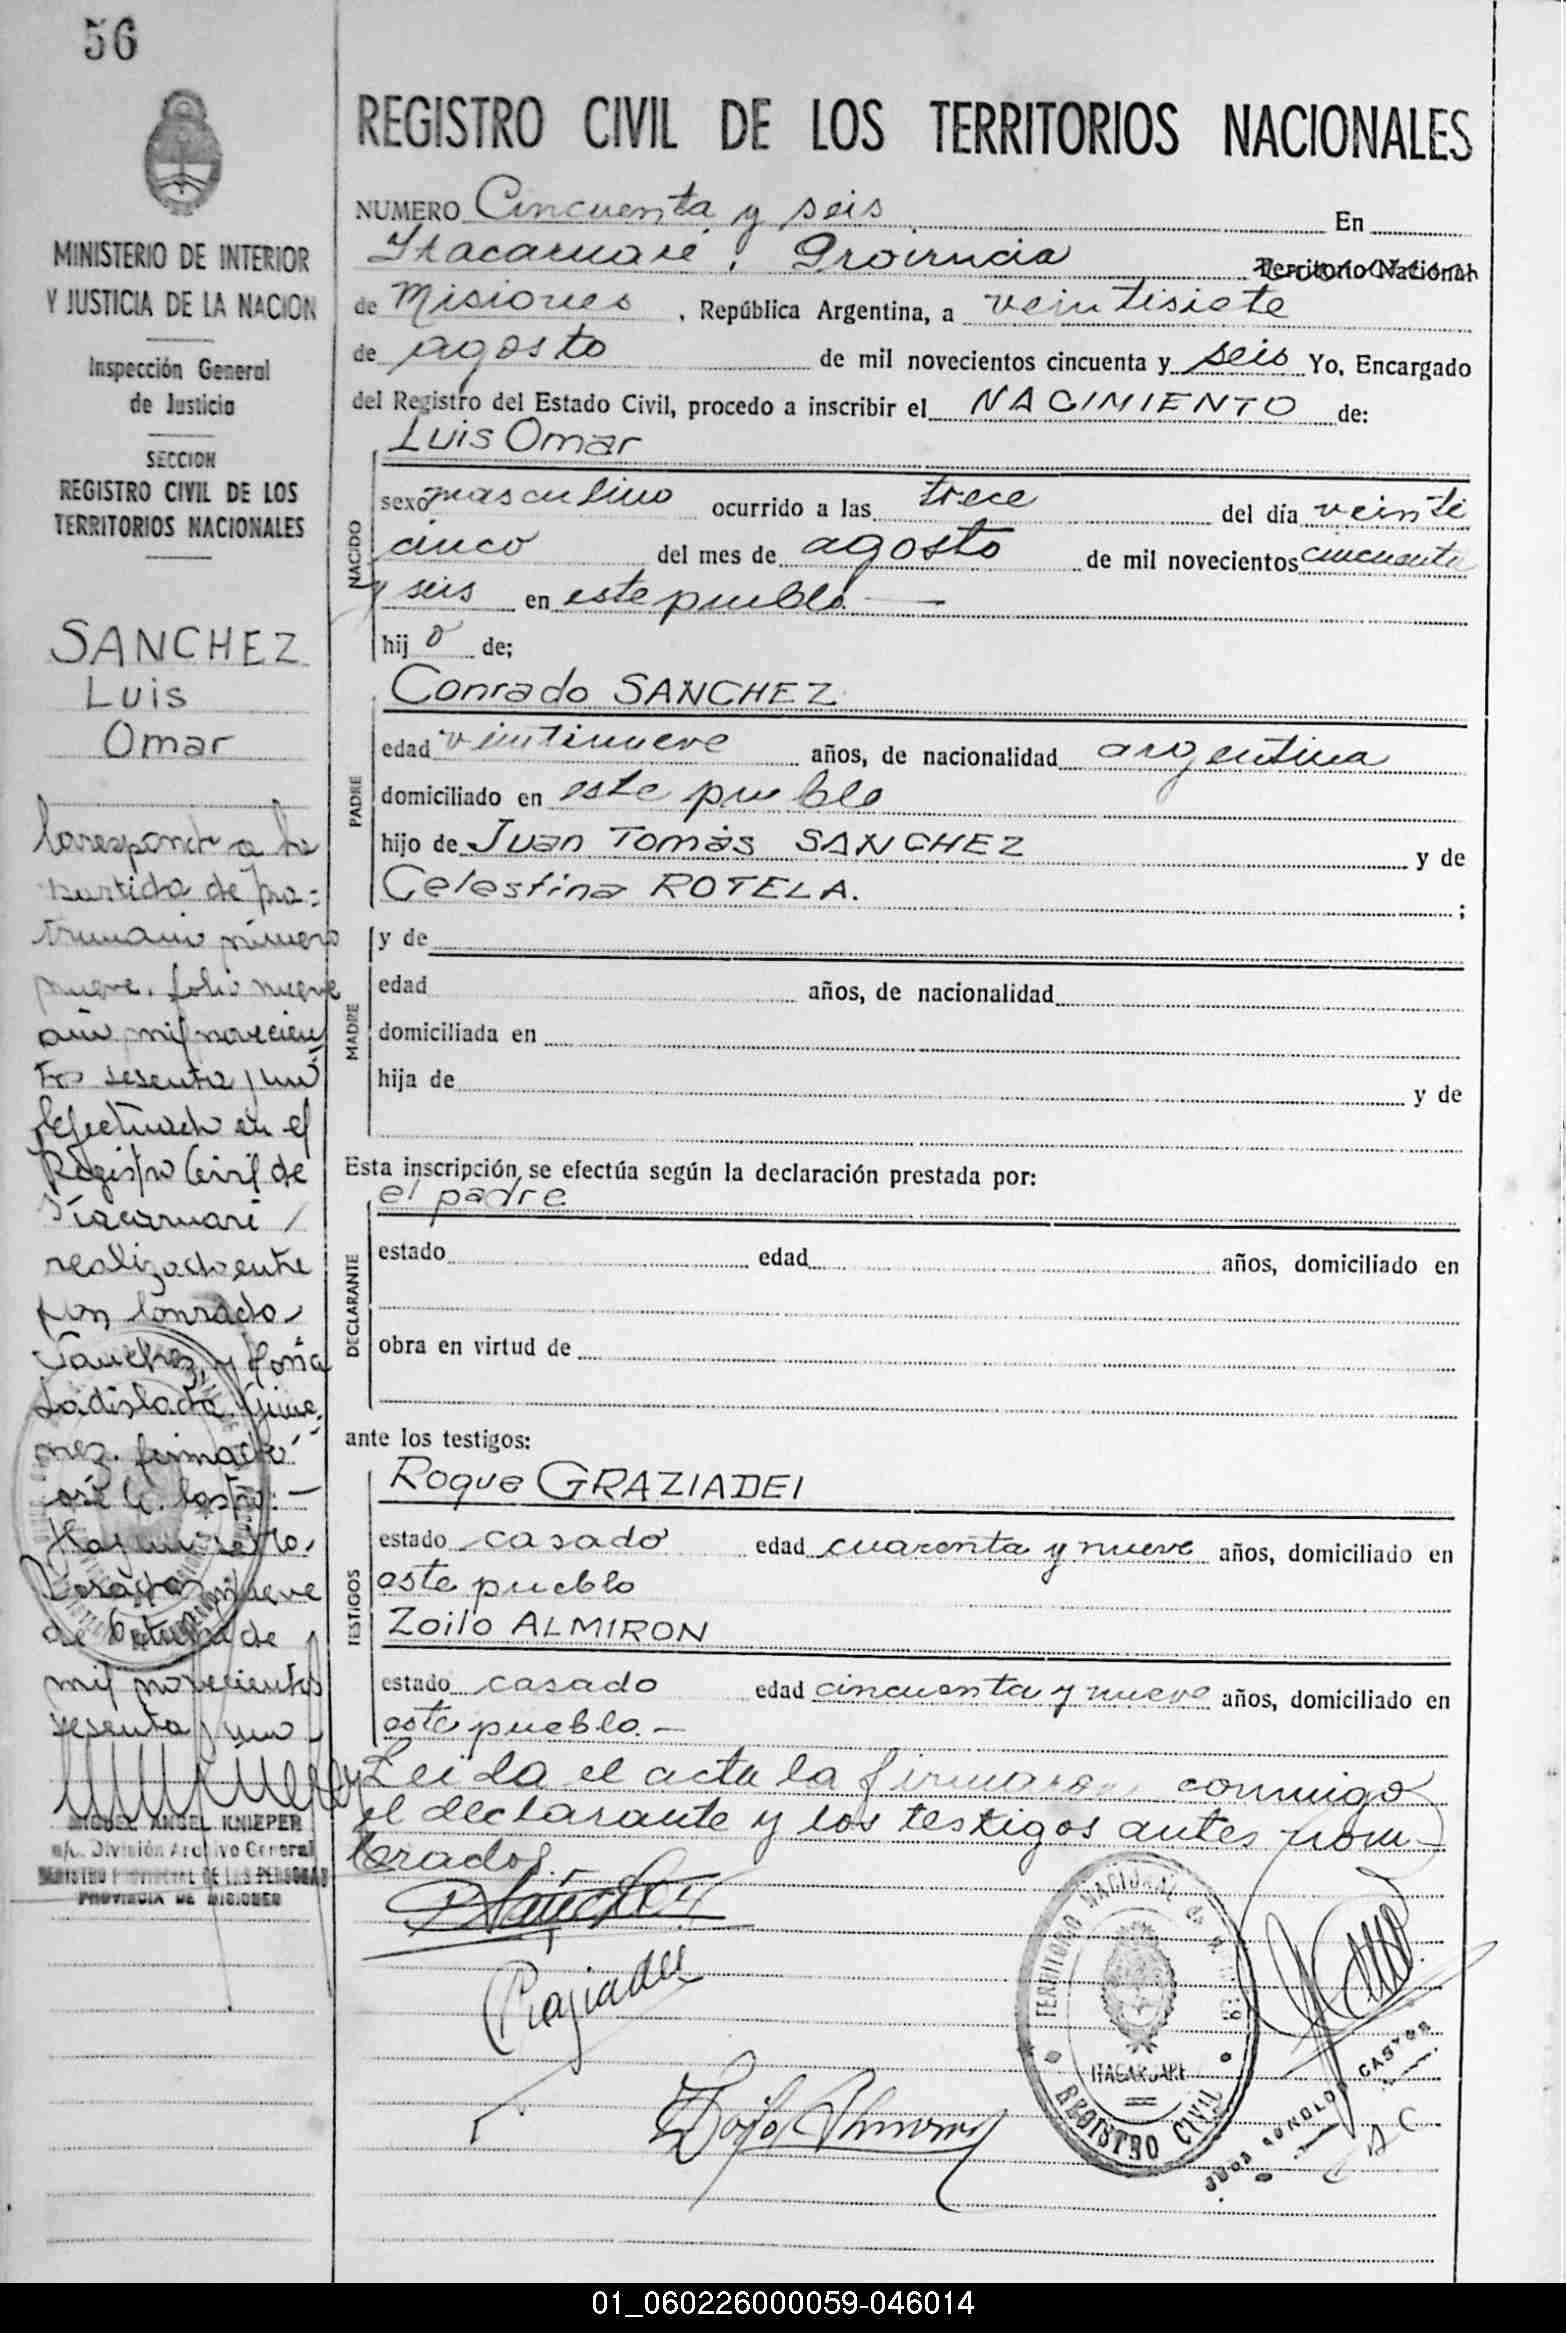 56
MINISTERIO DE INTERIOR
Y JUSTICIA DE LA NACION
Inspección General
de Justicia
SECCION
REGISTRO CIVIL DE LOS
TERRITORIOS NACIONALES
SANCHEZ
Luis
Omar
Corresponde a la
partida de ma=
trimonio número
nueve. folio nueve
año mil novecien
tos sesenta y uno
efectuado en el
Registro Civil de
Itacaruaré
realizado entre
don Conrado
Sanchez y doña
Ladislada Gime
nez. firmado
José C. Castro.
Hay un sello.
Posadas nueve
de Octubre de
mil novecientos
sesenta y uno
MIGUEL ANGEL KNIEPER
a/c. División Archivo General
REGISTRO PROVINCIAL DE LAS PERSONAS
PROVINCIA DE MISIONES
REGISTRO CIVIL DE LOS TERRITORIOS NACIONALES
NUMERO Cincuenta y seis En
Itacaruaré, Provincia Territorio Nacional
de Misiones, República Argentina, a veintisiete
de agosto de mil novecientos cincuenta y seis Yo, Encargado
del Registro del Estado Civil, procedo a inscribir el NACIMIENTO de:
Luis Omar
NACIDO
sexo masculino ocurrido a las trece del día veinti
cinco del mes de agosto de mil novecientos cincuenta
y seis en este pueblo.—
hijo de;
Conrado SANCHEZ
PADRE
edad veintinueve años, de nacionalidad argentina
domiciliado en este pueblo
hijo de Juan Tomás SANCHEZ y de
Celestina ROTELA. ;
MADRE
y de
edad años, de nacionalidad
domiciliada en
hija de y de
Esta inscripción se efectúa según la declaración prestada por:
el padre
DECLARANTE
estado edad años, domiciliado en
obra en virtud de
ante los testigos:
TESTIGOS
Roque GRAZIADEI
estado casado edad cuarenta y nueve años, domiciliado en
este pueblo
Zoilo ALMIRON
estado casado edad cincuenta y nueve años, domiciliado en
este pueblo.—
Leida el acta la firmaron conmigo
el declarante y los testigos antes nom-
brados.—
TERRITORIO NACIONAL de MISIONES
ITACARUARE
REGISTRO CIVIL
Zoilo Almiron
CASTRO
01_060226000059-046014